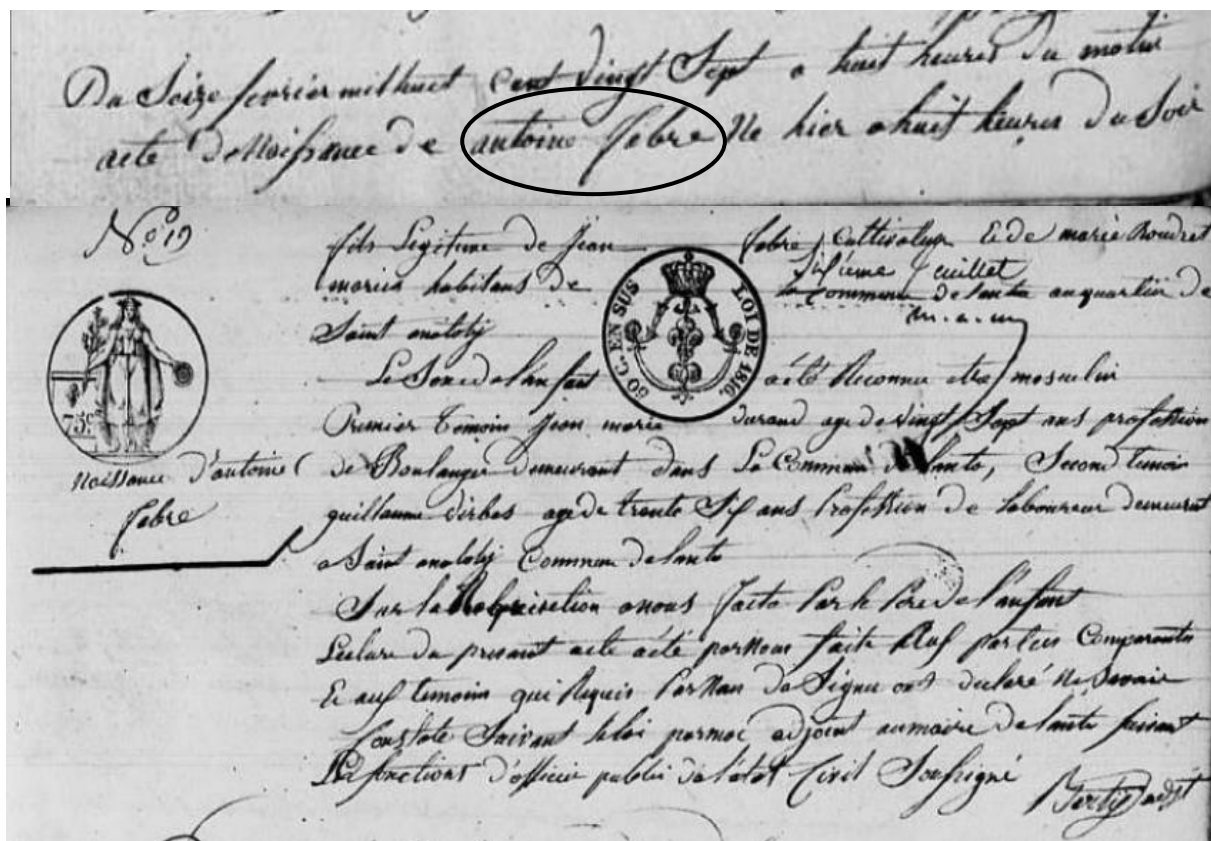 Du Seize fevrier mil huit cent vingt Sept a huit heures du matin
acte de Naissance de antoine febre Ne hier a huit heures du Soir
No 19
fils Legitime de Jean febre Cultivateur Et de marie Boudret
Sixieme feuillet
mariés habitans de la Commune de lanta au quartier de
m. a. m
Saint anatoly
50 C. EN SUS
LOI DE 1816.
75c
Le Sexe de lenfant a été Reconnu etre masculin
Premier Temoin Jean marie durand age de vingt Sept ans profession
Naissance d'antoine
febre
de Boulanger demeurant dans La Commune de lanta, Second temoin
guillaume dirbas age de trente Six ans Profession de laboureur demeurant
a Saint anatoly Commune de lanta
Sur la Requisition a nous faite Par le Pere de l'enfant
Lecture du present acte a été par Nous faite aux parties Comparantes
Et aux temoin qui Requis Par Nous de Signer ont declaré Ne Savoir
Constaté Suivant la loi par moi adjoint au maire de lanta faisant
Les fonctions d'officier public de l'etat Civil Soussigné